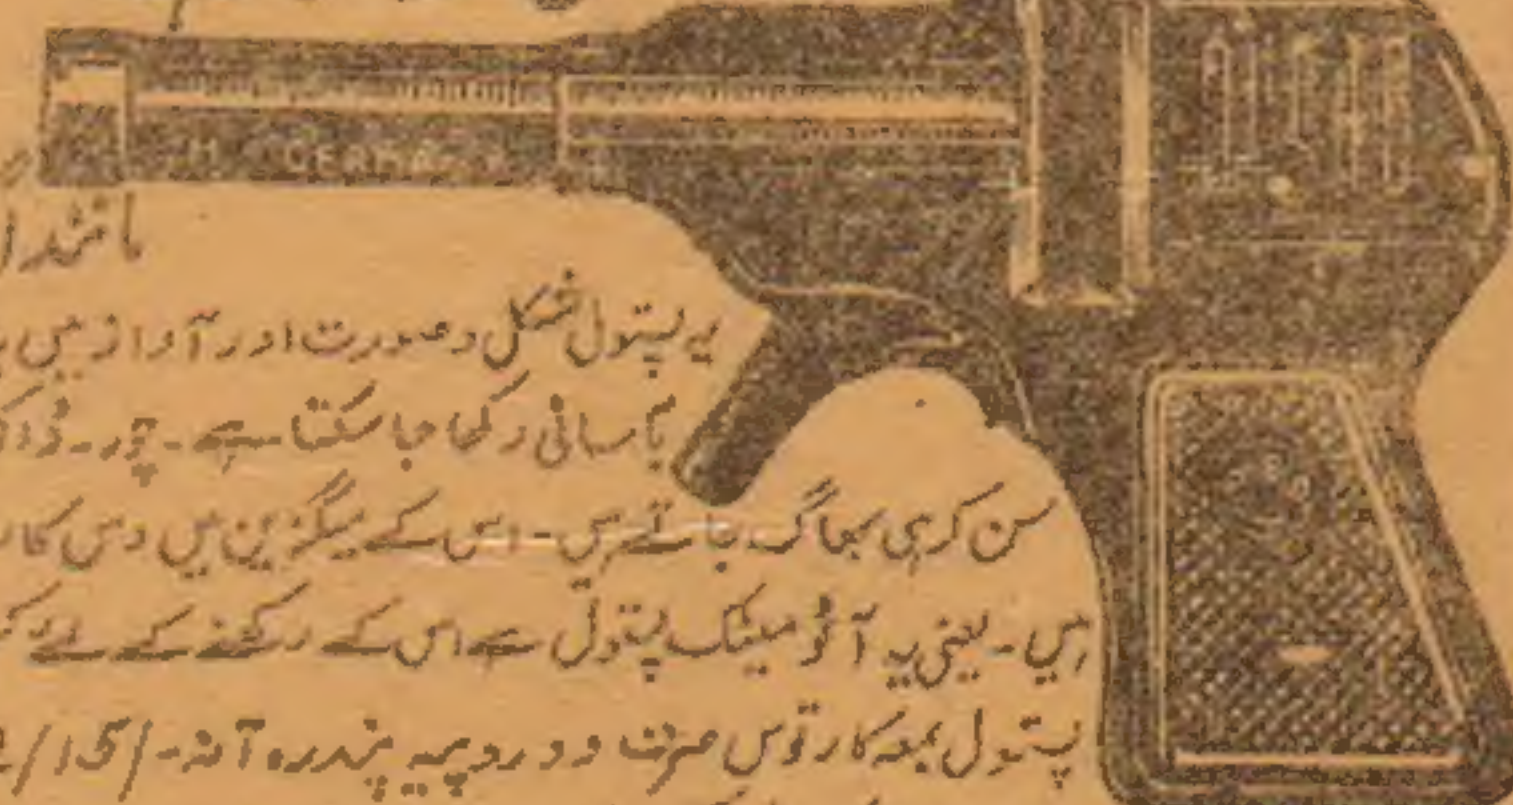 GERMA
مانند
یہ پستول شکل و صورت اور آواز میں
بآسانی رکھا جا سکتا ہے۔ چور۔
سن کر ہی بھاگ جاتے ہیں۔ اس کے میگزین میں دس
ہیں۔ یعنی یہ آٹو میٹک پستول ہے اس کے رکھنے کے لئے
پستول بمعہ کارتوس صرف دو روپیہ پندرہ آنہ۔/15/